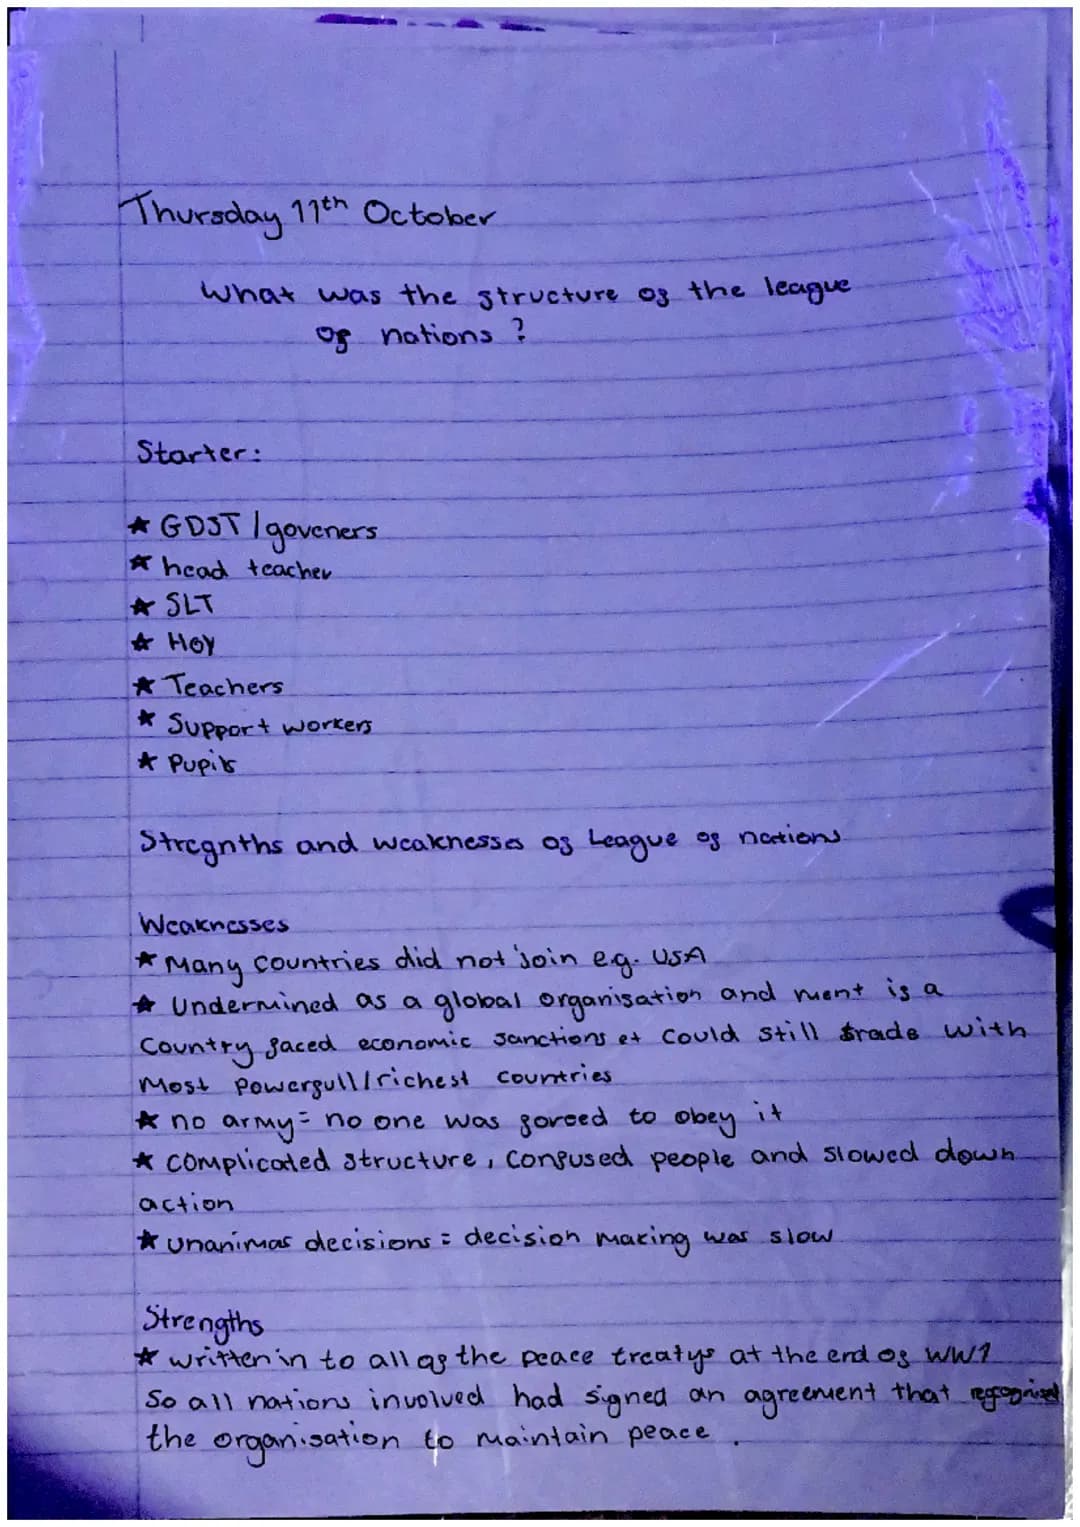 Thursday 11th October
What was the structure of the league
of nations ?
Starter:
★ GDST / goveners
★ head teacher
★ SLT
★ HOY
★ Teachers
★ Support workers
★ Pupils
Stregnths and weaknesses of League of nations
Weaknesses
★ Many countries did not join e.g. USA
★ Undermined as a global organisation and ment if a
Country faced economic sanctions et could still trade with
Most powerfull/richest countries
★ no army = no one was forced to obey it
★ complicated structure, confused people and slowed down
action
★ unanimas decisions = decision making was slow
Strengths
★ written in to all of the peace treatys at the end of WW1
So all nations involved had signed an agreement that
the organisation to maintain peace .